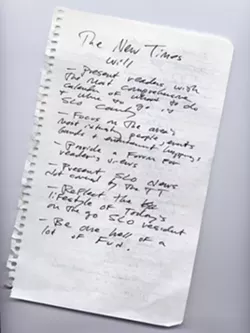 The New Times
will
- Present readers with
the most comprehensive
calendar of where to do
& where to go in
SLO County
- Focus on the area's
most interesting people, arts
bands & entertainment happenings
- Provide a forum for
readers views
- Present SLO News
not covered by the TT
- Reflect the
lifestyle of Today's
on the go SLO resident
- Be one hell of a
lot of FUN.